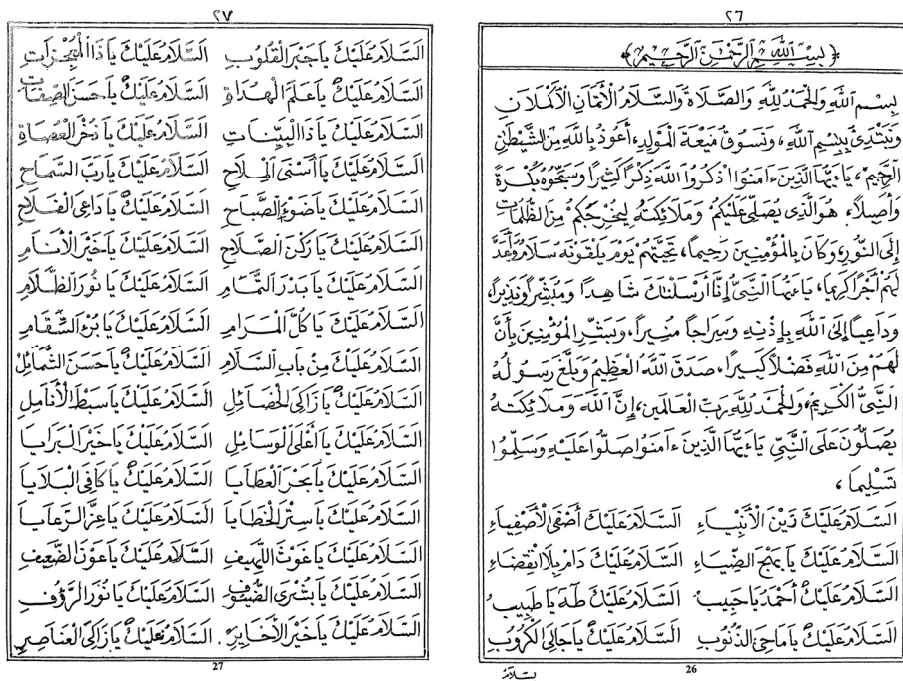 ٢٦
﴿ بِسْمِ اللهِ الرَّحْمٰنِ الرَّحِيمِ ﴾
بِسْمِ اللهِ وَالْحَمْدُ لِلّٰهِ وَالصَّلَاةُ وَالسَّلَامُ الْأَتَمَّانِ الْأَكْمَلَانِ
وَنَبْتَدِئُ بِبِسْمِ اللهِ، وَنَسُوقُ الْمَوْلِدِ، أَعُوذُ بِاللهِ مِنَ الشَّيْطٰنِ
الرَّجِيمِ، يَاأَيُّهَا الَّذِينَ ءَامَنُوا اذْكُرُوا اللهَ ذِكْرًا كَثِيرًا وَسَبِّحُوهُ بُكْرَةً
وَأَصِيلًا، هُوَ الَّذِي يُصَلِّي عَلَيْكُمْ وَمَلَائِكَتُهُ لِيُخْرِجَكُمْ مِنَ الظُّلُمَاتِ
إِلَى النُّورِ، وَكَانَ بِالْمُؤْمِنِينَ رَحِيمًا، تَحِيَّتُهُمْ يَوْمَ يَلْقَوْنَهُ سَلَامٌ وَأَعَدَّ
لَهُمْ أَجْرًا كَرِيمًا، يَاأَيُّهَا النَّبِيُّ إِنَّا أَرْسَلْنَاكَ شَاهِدًا وَمُبَشِّرًا وَنَذِيرًا،
وَدَاعِيًا إِلَى اللهِ بِإِذْنِهِ وَسِرَاجًا مُنِيرًا، وَبَشِّرِ الْمُؤْمِنِينَ بِأَنَّ
لَهُمْ مِنَ اللهِ فَضْلًا كَبِيرًا، صَدَقَ اللهُ الْعَظِيمُ وَبَلَّغَ رَسُولُهُ
النَّبِيُّ الْكَرِيمُ، وَالْحَمْدُ لِلّٰهِ رَبِّ الْعَالَمِينَ، إِنَّ اللهَ وَمَلَائِكَتَهُ
يُصَلُّونَ عَلَى النَّبِيِّ يَاأَيُّهَا الَّذِينَ ءَامَنُوا صَلُّوا عَلَيْهِ وَسَلِّمُوا
تَسْلِيمًا،
السَّلَامُ عَلَيْكَ زَيْنَ الْأَنْبِيَاءِ السَّلَامُ عَلَيْكَ أَصْفَى الْأَصْفِيَاءِ
السَّلَامُ عَلَيْكَ يَا بَهْجَ الضِّيَاءِ السَّلَامُ عَلَيْكَ دَامَ بِلَا انْقِضَاءِ
السَّلَامُ عَلَيْكَ أَحْمَدُ يَا حَبِيبُ السَّلَامُ عَلَيْكَ طٰهَ يَا طَبِيبُ
السَّلَامُ عَلَيْكَ يَا مَاحِيَ الذُّنُوبِ السَّلَامُ عَلَيْكَ يَا جَالِيَ الْكُرُوبِ
26
٢٧
السَّلَامُ عَلَيْكَ يَا جَبْرَ الْقُلُوبِ السَّلَامُ عَلَيْكَ يَا ذَا الْمُعْجِزَاتِ
السَّلَامُ عَلَيْكَ يَا عَلَمَ الْهُدَاةِ السَّلَامُ عَلَيْكَ يَا حَسَنَ الصِّفَاتِ
السَّلَامُ عَلَيْكَ يَا ذَا الْبَيِّنَاتِ السَّلَامُ عَلَيْكَ يَا ذُخْرَ الْعُصَاةِ
السَّلَامُ عَلَيْكَ يَا أَسْنَى الْمِلَاحِ السَّلَامُ عَلَيْكَ يَا رَبَّ السَّمَاحِ
السَّلَامُ عَلَيْكَ يَا ضَوْءَ الصَّبَاحِ السَّلَامُ عَلَيْكَ يَا دَاعِيَ الْفَلَاحِ
السَّلَامُ عَلَيْكَ يَا رُكْنَ الصَّلَاحِ السَّلَامُ عَلَيْكَ يَا خَيْرَ الْأَنَامِ
السَّلَامُ عَلَيْكَ يَا بَدْرَ التَّمَامِ السَّلَامُ عَلَيْكَ يَا نُورَ الظَّلَامِ
السَّلَامُ عَلَيْكَ يَا كُلَّ الْمَرَامِ السَّلَامُ عَلَيْكَ يَا بُرْءَ السَّقَامِ
السَّلَامُ عَلَيْكَ مِنْ بَابِ السَّلَامِ السَّلَامُ عَلَيْكَ يَا حَسَنَ الشَّمَائِلْ
السَّلَامُ عَلَيْكَ يَا زَاكِيَ الْخَصَائِلِ السَّلَامُ عَلَيْكَ يَا سَبْطَ الْأَنَامِلِ
السَّلَامُ عَلَيْكَ يَا أَعْلَى الْوَسَائِلِ السَّلَامُ عَلَيْكَ يَا خَيْرَ الْبَرَايَا
السَّلَامُ عَلَيْكَ يَا بَحْرَ الْعَطَايَا السَّلَامُ عَلَيْكَ يَا كَافِيَ الْبَلَايَا
السَّلَامُ عَلَيْكَ يَا سِتْرَ الْخَطَايَا السَّلَامُ عَلَيْكَ يَا عِزَّ الرَّعَايَا
السَّلَامُ عَلَيْكَ يَا غَوْثَ اللَّهِيفِ السَّلَامُ عَلَيْكَ يَا عَوْنَ الضَّعِيفِ
السَّلَامُ عَلَيْكَ يَا بُشْرَى الضُّيُوفِ السَّلَامُ عَلَيْكَ يَا نُورَ الرَّؤُفِ
السَّلَامُ عَلَيْكَ يَا خَيْرَ الْأَخَايِرِ. السَّلَامُ عَلَيْكَ يَا زَاكِيَ الْعَنَاصِرِ
27